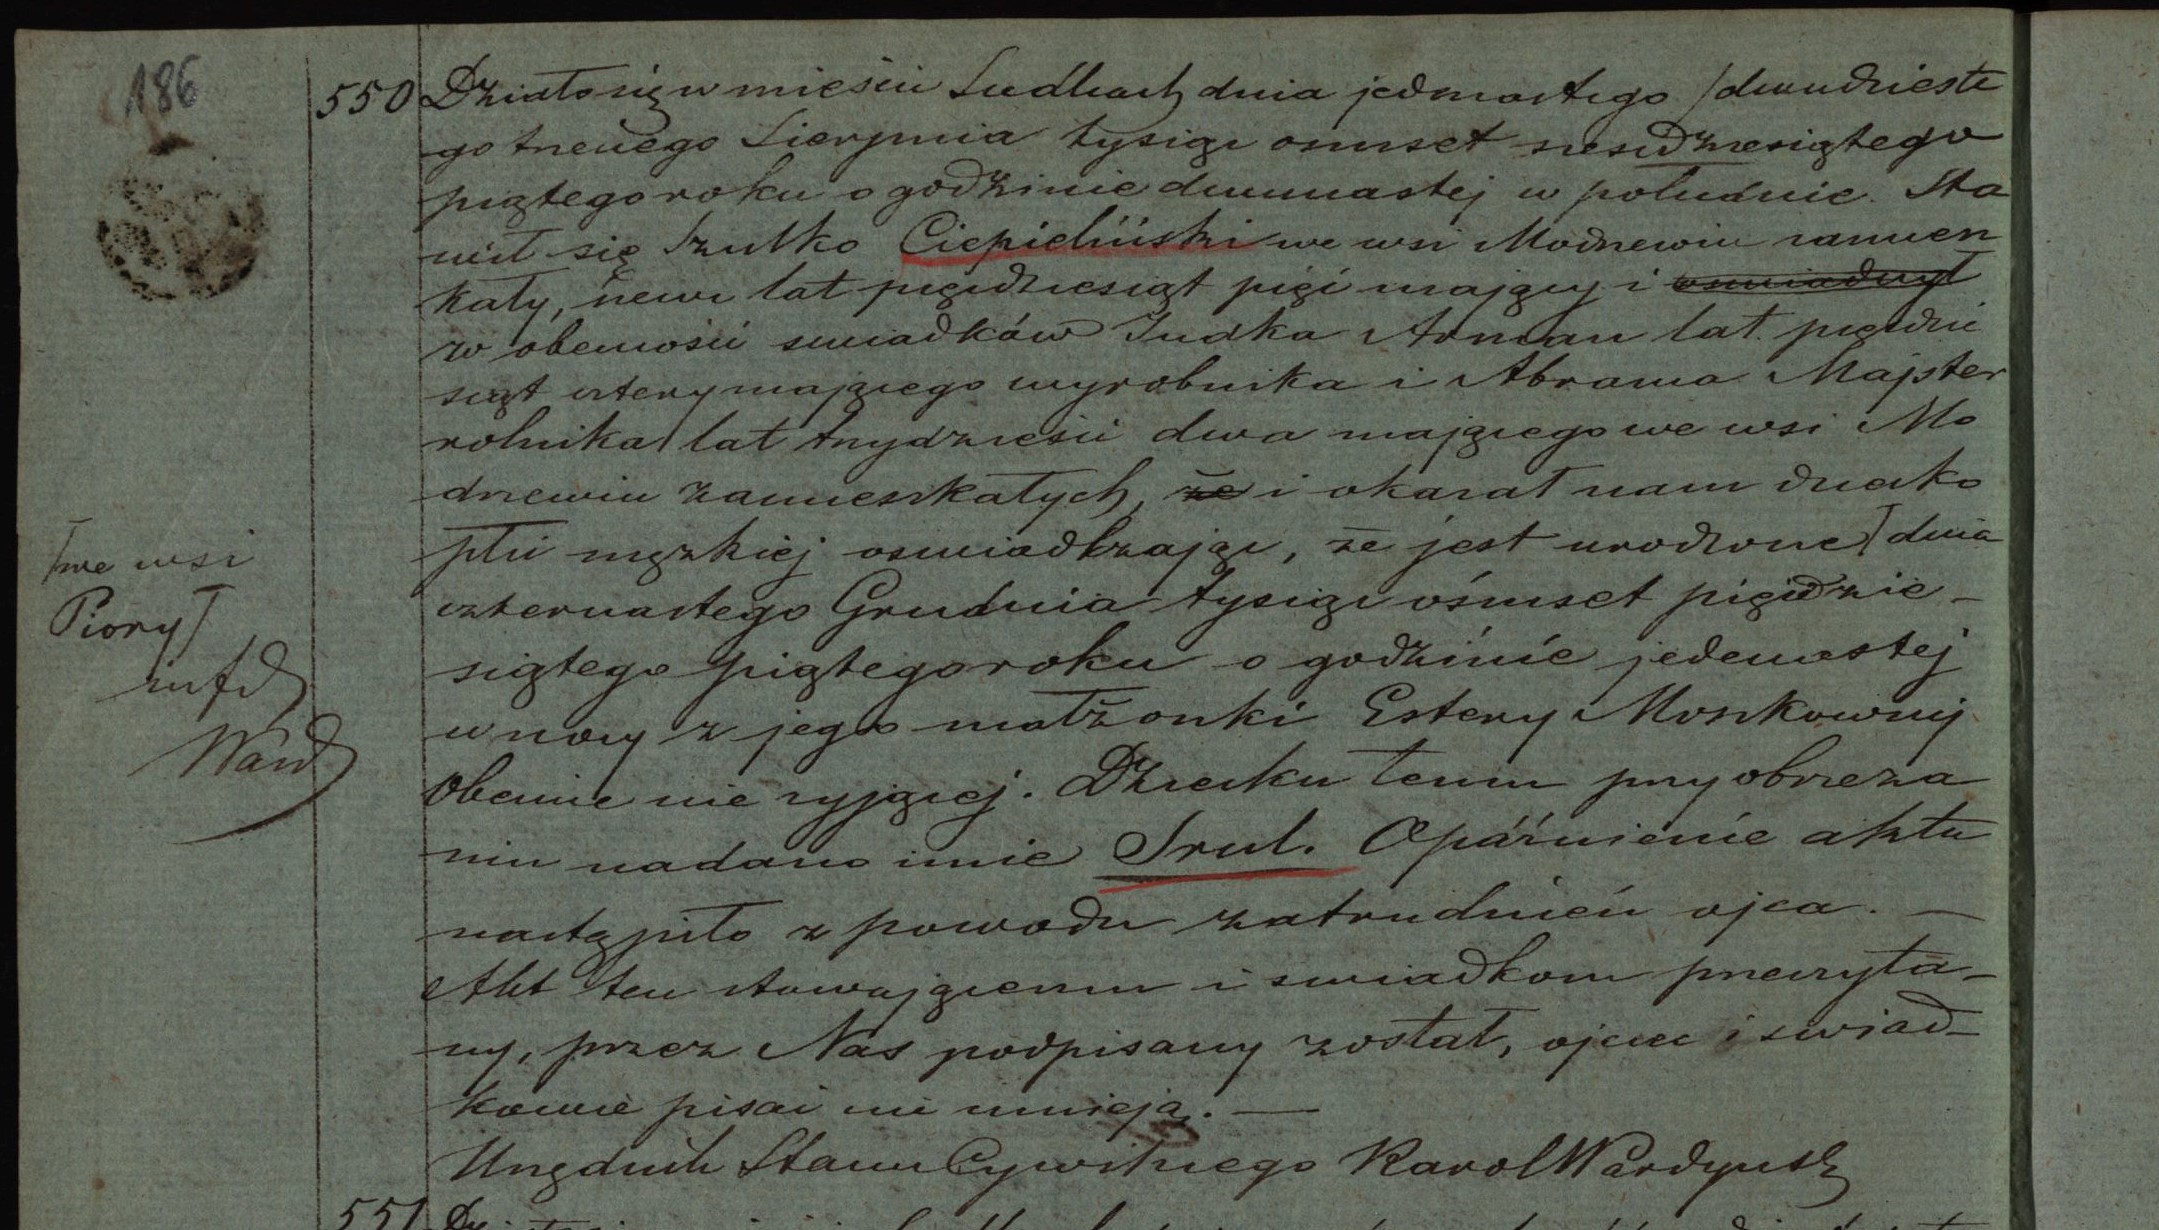 186
550 Działo się w mieście Siedlcach dnia jednastego /dwudzieste
go trzeciego Sierpnia tysiąc ośmset sześdziesiątego
piątego roku o godzinie dwunastej w południe. Sta
wił się Szulko Ciepieliński we wsi Modrzewiu zamiesz
kały, szewc lat pięćdziesiąt pięć mający i oświadczył
w obecności swiadków Judka Arman lat pięćdzie
siąt cztery mającego wyrobnika i Abrama Majster
rolnika lat trzydzieści dwa mającego we wsi Mo
drzewiu zamieszkałych, że i okazał nam dziecko
płci męzkiej oswiadczając, że jest urodzone/ dnia
czternastego Grudnia tysiąc ośmset pięćdzie-
siątego piątego roku o godzinie jedenastej
w nocy z jego małżonki Estery Moszkowny
Obecnie nie zyjącej. Dziecku temu przy obrzeza
niu nadano imie Srul. Opóźnienie aktu
nastąpiło z powodu zatrudnień ojca. —
Akt ten stawającemu i swiadkom przeczyta-
ny, przez Nas podpisany został, ojciec i swiad-
kowie pisać nie umieją. —
Urzędnik Stanu Cywilnego Karol Wardyński
/we wsi
Pióry/
551